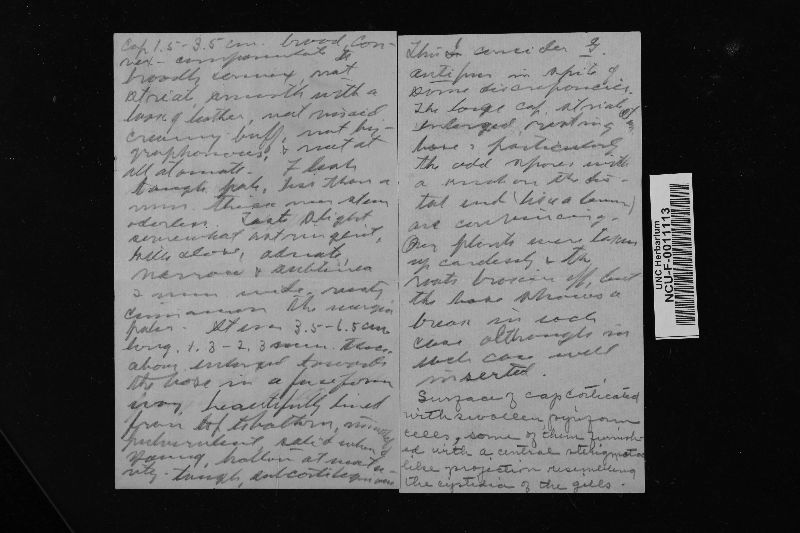 Cap 1.5-3.5 cm. broad, con-
vex - campanulate to
broadly convex, not
striate, smooth with a
look of leather, not viscid
creamy buff, not hy-
grophanous, & not at
all atomate. Flesh
tough, pale, less than a
mm. thick near stem
odorless. Taste slight
somewhat astringent,
Gills close, adnate,
narrow &
2 mm. wide, rusty
cinnamon the margin
paler. Stem 3.5-6.5 cm
long, 1.3-2.3 mm. thick
above, enlarged towards
the base in a fusiform
way, beautifully lined
from top to bottom, minutely
pulverulent, solid when
young, hollow at mat-
rity - tough, subcartilaginous
This I consider G.
antipus in spite of
some discrepancies.
The large cap, striate,
enlarged, rooting
base & particularly
the odd spores with
a on the dis-
tal end (like a lemon)
are convincing.
Our plants were taken
up carelessly & the
roots broken off, but
the base shows a
break in each
case although in
each case well
inserted.
Surface of cap corticated
with swollen pyriform
cells, some of them furnish-
ed with a central sterigmata
like projection resembling
the cystidia of the gills.
UNC Herbarium
NCU-F-0011113